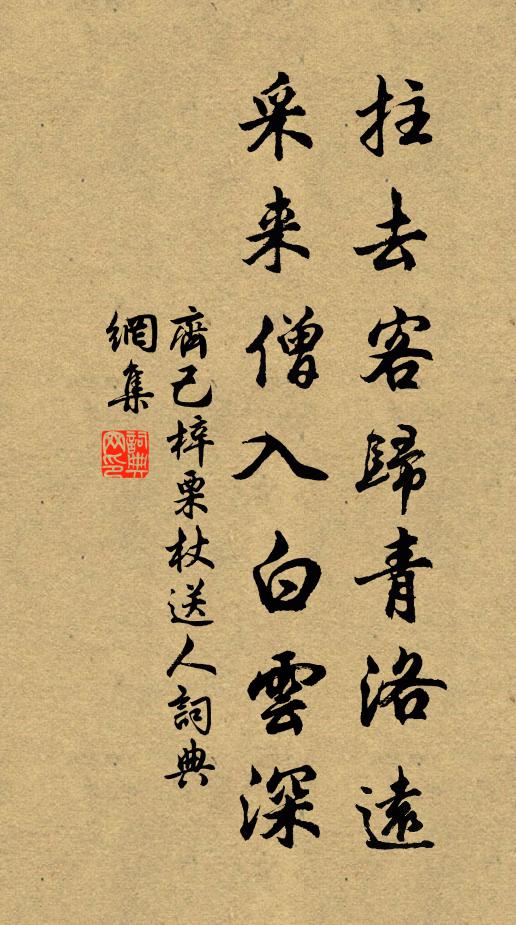 拄去客歸青洛遠
采来僧入白雲深
齊己梓栗杖送人詞典
網集
詞典
网印